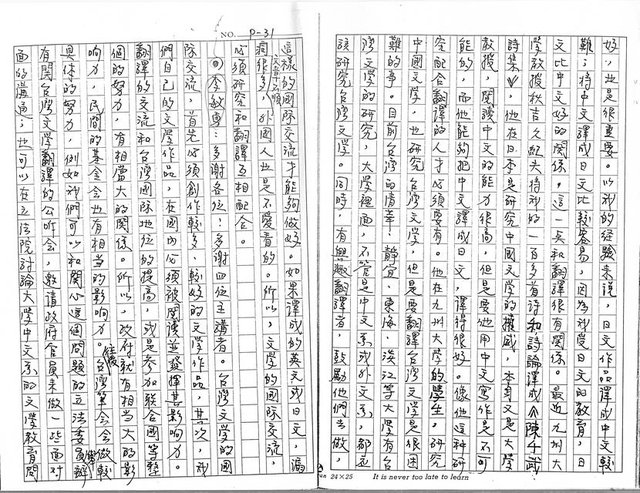 好，也是很重要。以我的經驗来說，日文作品譯成中文較
難；將中文譯成日文比較容易，因為我受日文的教育，日
文比中文好的關係，這一点和翻譯很有關係。最近九州大
學教授秋吉久紀夫將我的一百多首詩和詩論譯成《陳千武
詩集》，他在日本是研究中國文學的權威，本身又是大學
教授，閱讀中文的能力很高，但是要他用中文寫作是不可
能的，而他能夠把中文譯成日文，譯得很好。像他這种研
究配合翻譯的人才必須要有。他在九州大學的學生，研究
中國文學，也研究台灣文學，但是要翻譯台灣文學是很困
難的事。目前台灣的清華、靜宜、東海、淡江等大學有台
灣文學的研究，大學裡面，不管是中文系或外文系，都應
該研究台灣文學。同時，有興趣翻譯者，鼓勵他們去做，
24×25 It is never too late to learn
NO. P-31
這樣的國際交流才能夠做好。如果譯成的英文或日文，漏
洞很多，文章不順，外國人也是不愛看的。所以，文學的國際交流，
必須研究和翻譯互相配合。
李敏勇：多謝各位，多謝四位主講者。台灣文學的國
際交流，首先必須創作較多、較好的文學作品，其次，我
們自己的文學作品，在國內必須被閱讀並發揮其影響力。
翻譯的交流和台灣國際地位的提高，或是參加聯合國等整
個的努力，有相當大的關係。所以，政府就有相當大的影
响力，民間的基金會也有相當的影响力。台灣筆會會做較
具体的努力，例如我們可以和關心這個問題的立法委員辦
有關台灣文學翻譯的公听會，邀請政府官員來做一些面對
面的溝通；也可以在立法院討論大學中文系的文學教育問